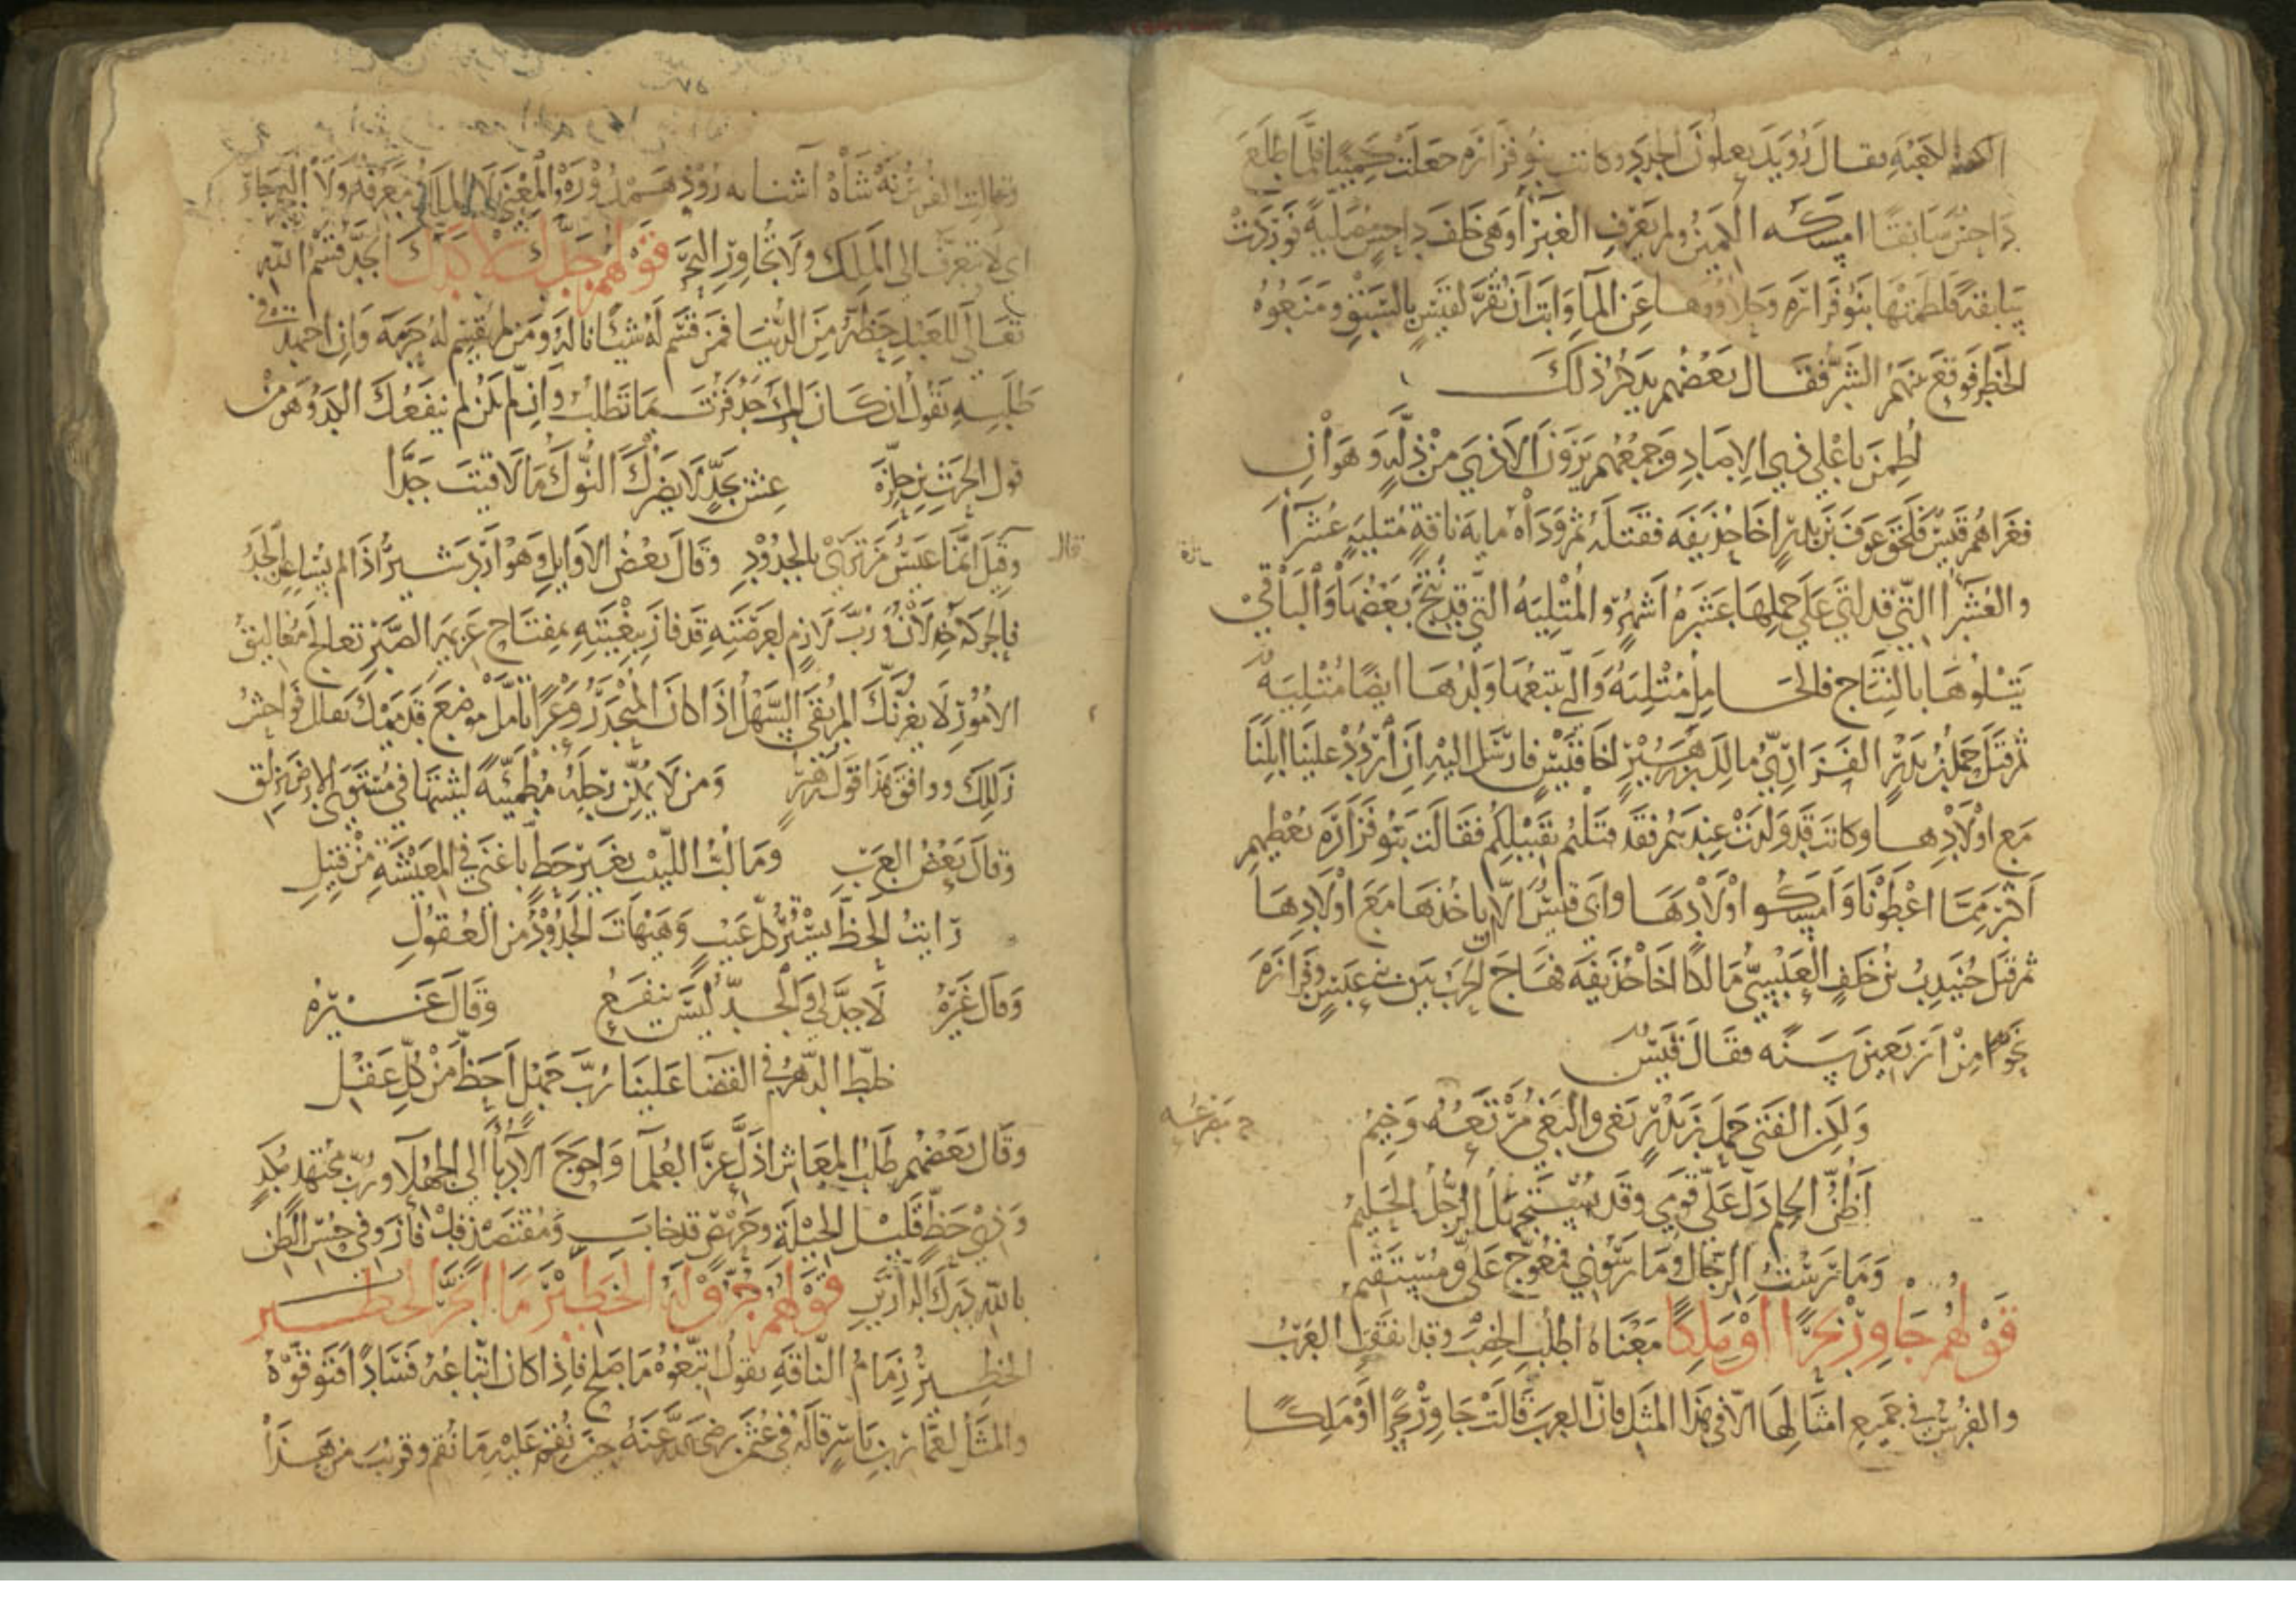 فقال رويد يعلون الجدد وكانت بنو فزارة جعلت كمينا فلما طلع
داحس سابقا امسكه الكمين ولم يعرف الغبرا وهى خلف داحس مصلية فوردت
سابقة فلطمتها بنو فزارة وحلاووها عن الماء وابت ان تقر لقيس بالسبق ومنعوه
الخطر فوقع بينهم الشر فقال بعضهم يذكر ذلك
لطمن باعلى ذي الاصاد وجمعهم يرون الاذي من ذلة وهوان
فغزاهم قيس فلحق عوف بن بدر اخا حذيفه فقتله ثم وداه ماية ناقة متلية عشرا
والعشرا التي قد اتي على حملها عشرة اشهر والمتلية التي قد نتج بعضها والباقي
يتلوها بالنتاج فالحامل متلية والتي يتبعها ولدها ايضا متلية
ثم قتل حمل بن بدر الفزاري مالك بن زهير اخا قيس فارسل اليه ان اردد علينا ابلنا
مع اولادها وكانت قد ولدت عندهم فقد قتلتم بقتيلكم فقالت بنو فزارة نعطيهم
اكثر مما اعطونا وامسكوا اولادها وابى قيس الا ياخذها مع اولادها
ثم قتل جنيدب بن خلف العبسي مالكا اخا حذيفه فهاج الحرب بين بني عبس وفزارة
نحوا من اربعين سنه فقال قيس
ولكن الفتى حمل بن بدر بغى والبغي مرتعه وخيم
اظن الحلم دل على قومي وقد يستجهل الرجل الحليم
ومارست الرجال ومارسوني فمعوج علي ومستقيم
قولهم جاور بحرا او ملكا معناه اطلب الخصب وقد اتفقت العرب
والفرس في جميع امثالها الا في هذا المثل فان العرب قالت جاور بحرا او ملكا
وقالت الفرس نه شاه آشنا نه رود همسوره والمعنى لا الملك معرفة ولا البحر جار
اي لا تتعرف الى الملك ولا تجاور البحر قولهم جدك لا كدك الجد قسم الله
تعالى للعبد حظه من الدنيا فمن قسم له شيا ناله ومن لم يقسم له حرمه وان اجهد في
طلبه تقول ان كان لك جد فزت بما تطلب وان لم يكن لم ينفعك الكد وهو من
قول الحرث بن حلزة عش بجد لا يضرك النوك ما لاقيت جدا
وقيل انما عيش من ترى بالجدود وقال بعض الاوايل وهو اردشير اذا لم يساعد الجد
فالحركة خذلان ورب لازم لعرصته قد فاز ببغيته بمفتاح عزيمة الصبر تعالج مغاليق
الامور لا يغرنك المرتقى السهل اذا كان المنحدر وعرا تامل موضع قدمك تقلل فواحش
زللك ووافق هذا قول زهير ومن لا يمكن رجله مطمئنة ليثبتها في مستوى الارض يزلق
وقال بعض العرب وما لب اللبيب بغير حظ باغنى في المعيشة من فتيل
رايت الحظ يستر كل عيب وهيهات الجدود من العقول
وقال غيره لا جد لي والجد ليس ينفع وقال غيره
خلط الدهر في القضا علينا رب جهل احظ من كل عقل
وقال بعضهم طلب المعاش اذل عز العلما واحوج الادبا الى الجهلا ورب مجتهد مكد
وذي حظ قليل الحيلة وحريص قد خاب ومقتصد قد فاز وفي حسن الظن
بالله درك المارب قولهم جروا له الخطير ما انجر الخطير
الخطير زمام الناقة يقول اتبعوه ما صلح فاذا كان اتباعه فسادا فتوقوه
والمثل لعمار بن ياسر قاله في عثمن رضي الله عنه حين نقم عليه ما نقم وقريب من هذا